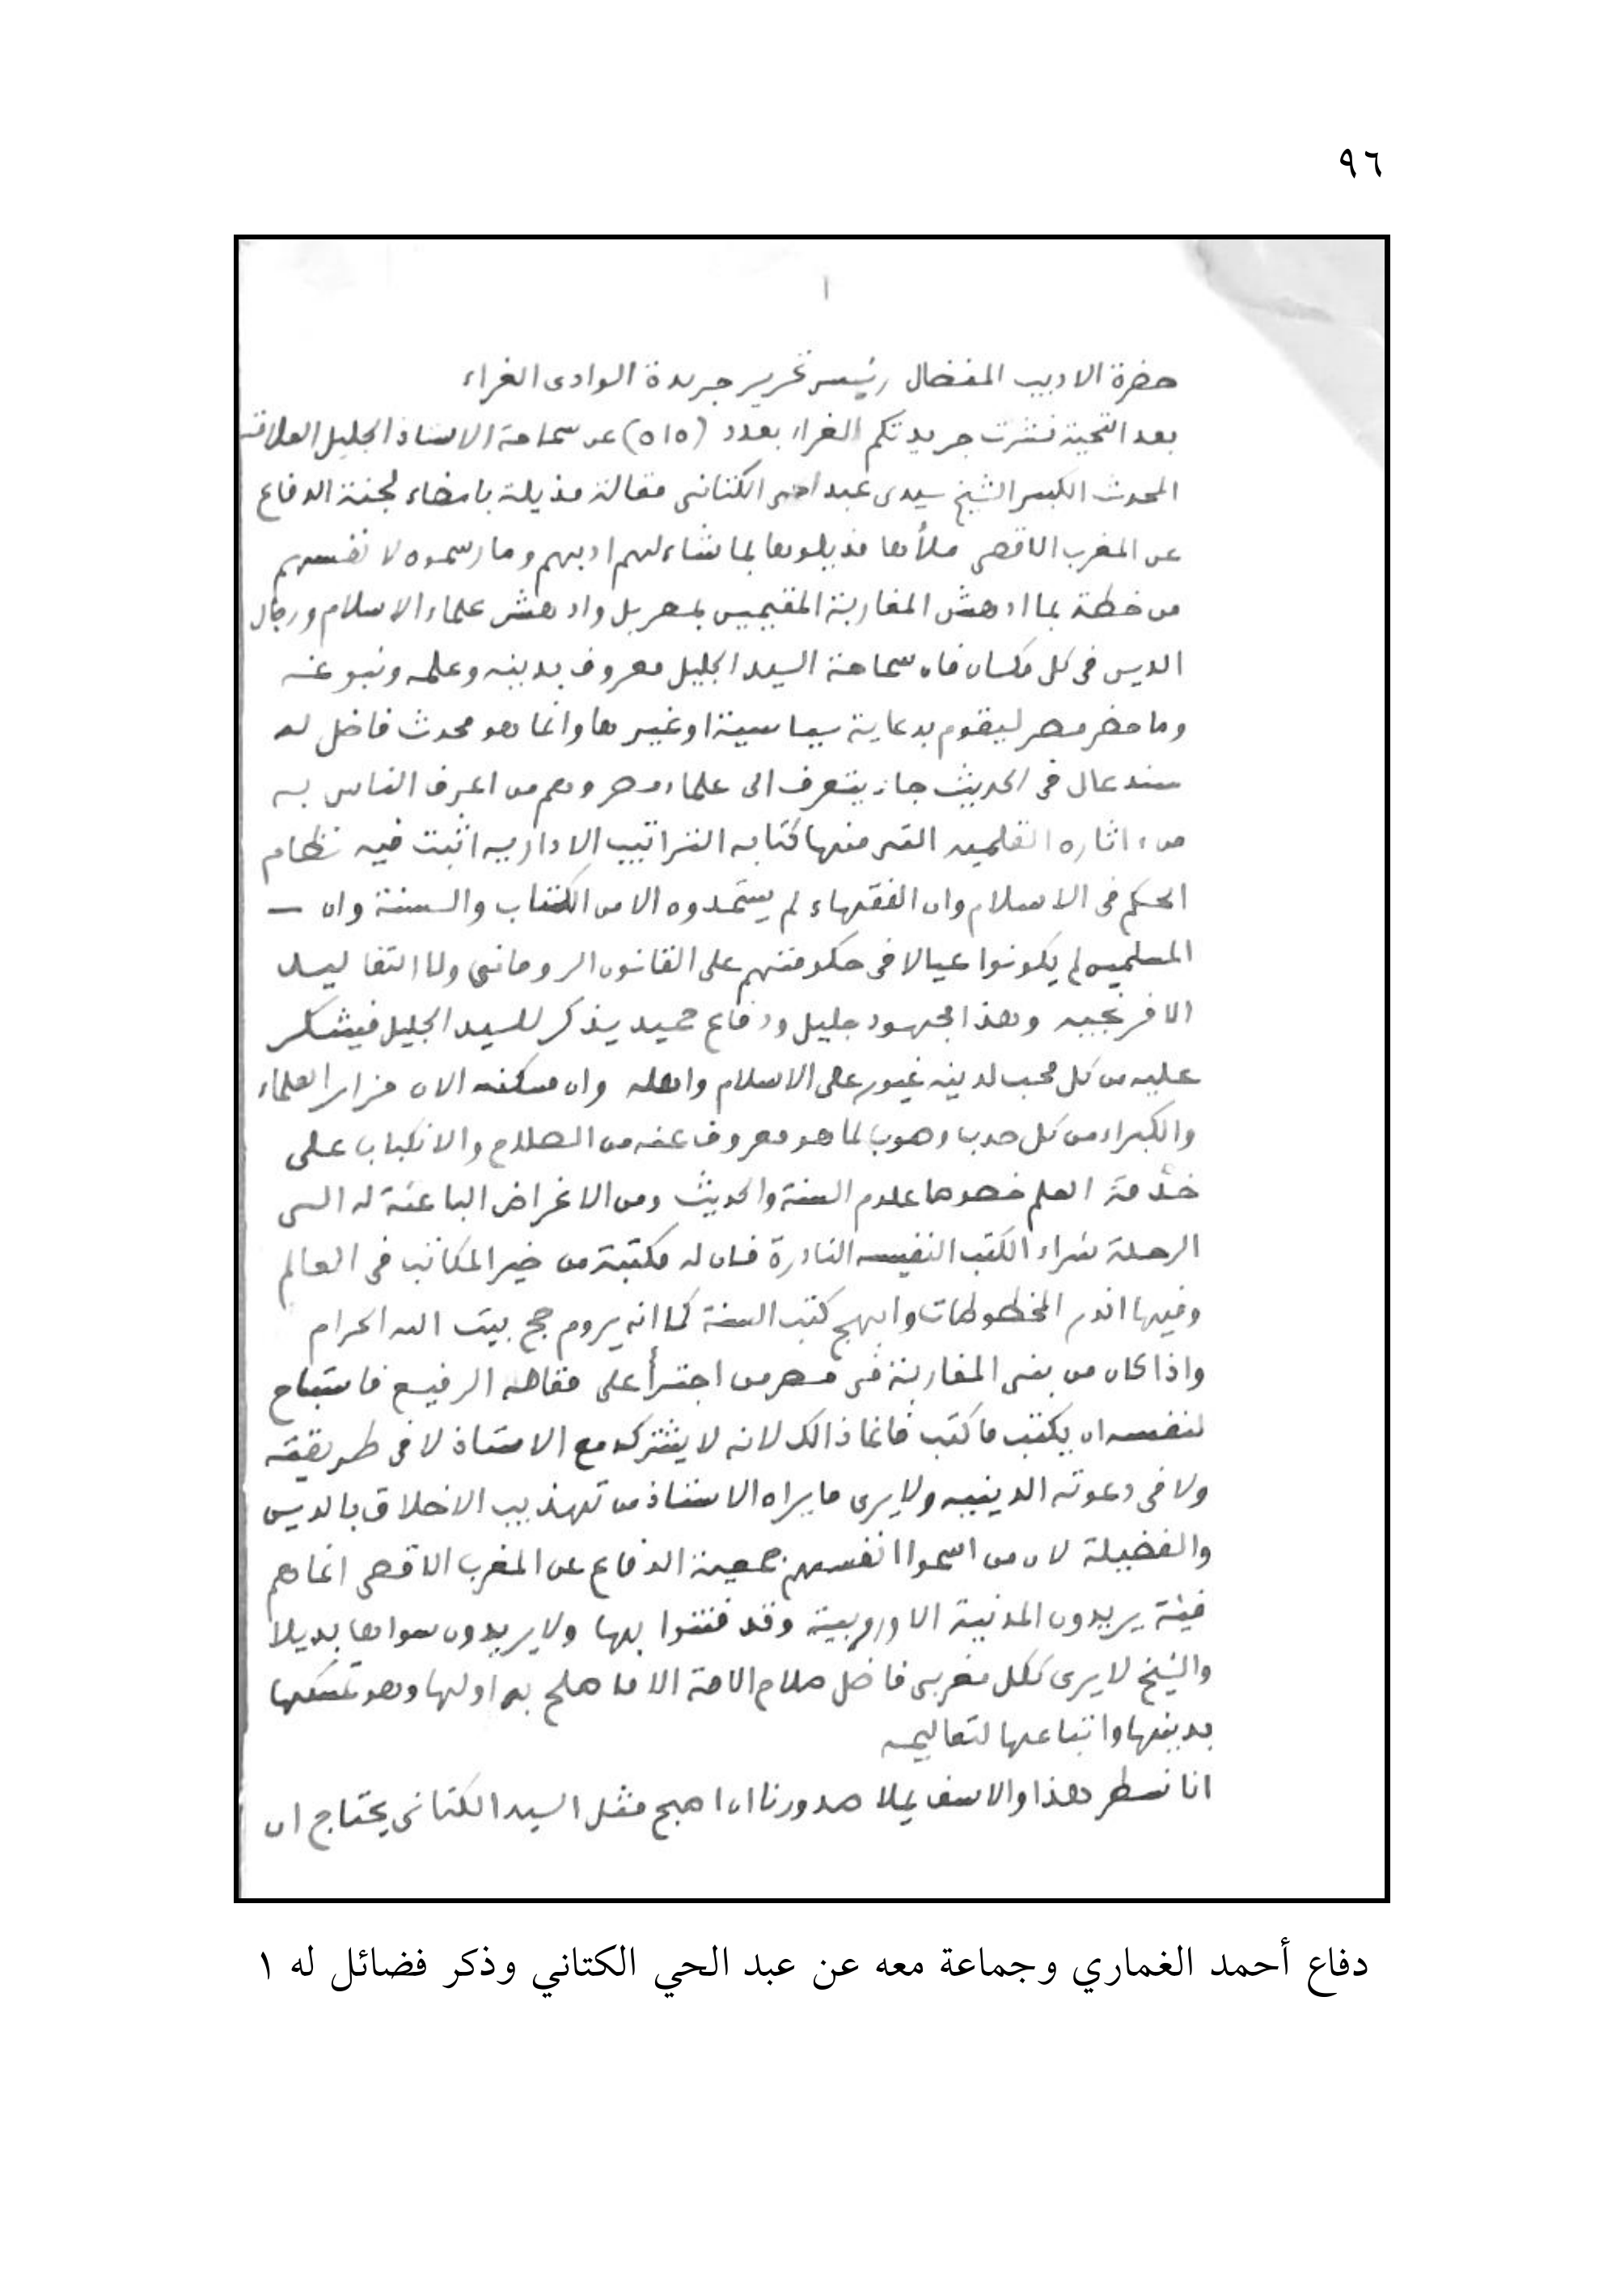 ٩٦
١
حضرة الاديب المفضال رئيس تحرير جريدة الوادى الغراء
بعد التحية نشرت جريدتكم الغراء بعدد (٥١٥) عن سماحة الاستاذ الجليل العلامة
المحدث الكبير الشيخ سيدى عبد الحى الكتانى مقالة مذيلة بامضاء لجنة الدفاع
عن المغرب الاقصى ملأها مذيلوها بما شاء لهم ادبهم وما رسموه لانفسهم
من خطة بما ادهش المغاربة المقيمين بمصر بل وادهش علماء الاسلام ورجال
الدين فى كل مكان فان سماحة السيد الجليل معروف بدينه وعلمه ونبوغه
وما حضر مصر ليقوم بدعاية سياسية اوغيرها وانما هو محدث فاضل له
سند عال فى الحديث جاء يتعرف الى علماء مصر وهم من اعرف الناس به
من ءاثاره القلميه التى منها كتابه التراتيب الاداريه اثبت فيه نظام
الحكم فى الاسلام وان الفقهاء لم يستمدوه الا من الكتاب والسنة وان —
المسلمين لم يكونوا عيالا فى حكومتهم على القانون الرومانى ولا التقاليد
الافرنجيه وهذا مجهود جليل ودفاع حميد يذكر للسيد الجليل فيشكر
عليه من كل محب لدينه غيور على الاسلام واهله وان مسكنه الان مزار العلماء
والكبراء من كل حدب وصوب لما هو معروف عنه من الصلاح والانكباب على
خدمة العلم خصوصا علوم السنة والحديث ومن الاغراض الباعثة له الى
الرحلة شراء الكتب النفيسه النادرة فان له مكتبة من خير المكاتب فى العالم
وفيها اندر المخطوطات وابهج كتب السنة كما انه يروم حج بيت الله الحرام
واذا كان من بعض المغاربة فى مصر من اجترأ على مقامه الرفيع فاستباح
لنفسه ان يكتب ما كتب فانما ذالك لانه لا يشترك مع الاستاذ لا فى طريقته
ولا فى دعوته الدينيه ولا يرى ما يراه الاستاذ من تهذيب الاخلاق بالدين
والفضيلة لان من اسموا انفسهم جمعية الدفاع عن المغرب الاقصى انما هم
فئة يريدون المدنية الاوروبية وقد فتنوا بها ولا يريدون سواها بديلا
والشيخ لا يرى ككل مغربى فاضل صلاح الامة الا ما صلح به اولها وهو تمسكها
بدينها واتباعها لتعاليمه
انا نسطر هذا والاسف يملا صدورنا ان اصبح مثل السيد الكتانى يحتاج ان
دفاع أحمد الغماري وجماعة معه عن عبد الحي الكتاني وذكر فضائل له ١